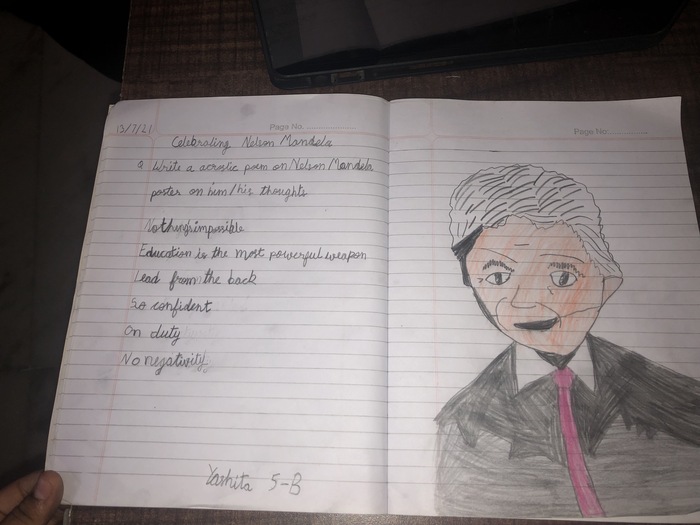 13/7/21
Page No.
Celebrating Nelson Mandela
Q Write a acrostic poem on Nelson Mandela
poster on him/his thoughts
Nothing's impossible
Education is the most powerful weapon
Lead from the back
So confident
On duty
No negativity.
Yashita 5-B
Page No.